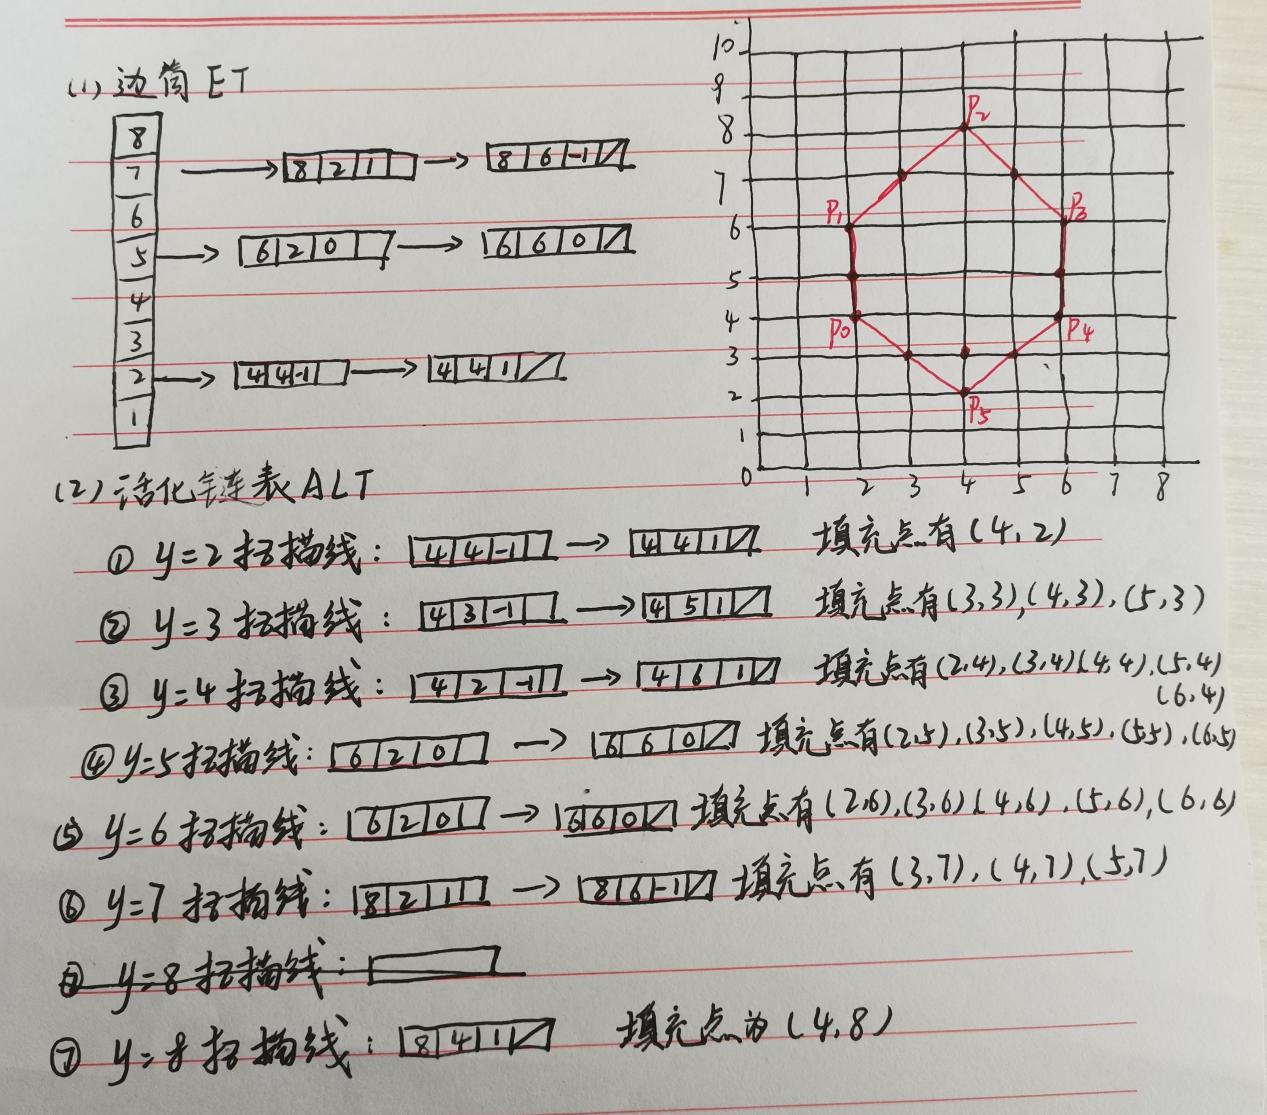 (1) 边筒ET
8
7 → 8 2 1 → 8 6 -1
6
5 → 6 2 0 → 6 6 0
4
3
2 → 4 4 -1 → 4 4 1
1
10
9
8
7
6
5
4
3
2
1
0 1 2 3 4 5 6 7 8
P2
P1 P3
P0 P4
P5
(2) 活化链表ALT
① y=2扫描线: 4 4 -1 → 4 4 1 填充点有(4,2)
② y=3扫描线: 4 3 -1 → 4 5 1 填充点有(3,3),(4,3),(5,3)
③ y=4扫描线: 4 2 -1 → 4 6 1 填充点有(2,4),(3,4)(4,4),(5,4)
(6,4)
④ y=5扫描线: 6 2 0 → 6 6 0 填充点有(2,5),(3,5),(4,5),(5,5),(6,5)
⑤ y=6扫描线: 6 2 0 → 6 6 0 填充点有(2,6),(3,6)(4,6),(5,6),(6,6)
⑥ y=7扫描线: 8 2 1 → 8 6 -1 填充点有(3,7),(4,7),(5,7)
⑦ y=8扫描线:
⑦ y=8扫描线: 8 4 1 填充点为(4,8)